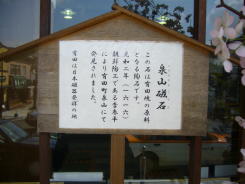 泉山磁石
いずみやまじせき
この石は有田焼の原料
となる陶石です。
元和二年(一六一六)
朝鮮陶工である李参平
により有田町泉山にて
発見されました。
有田は日本磁器発祥の地